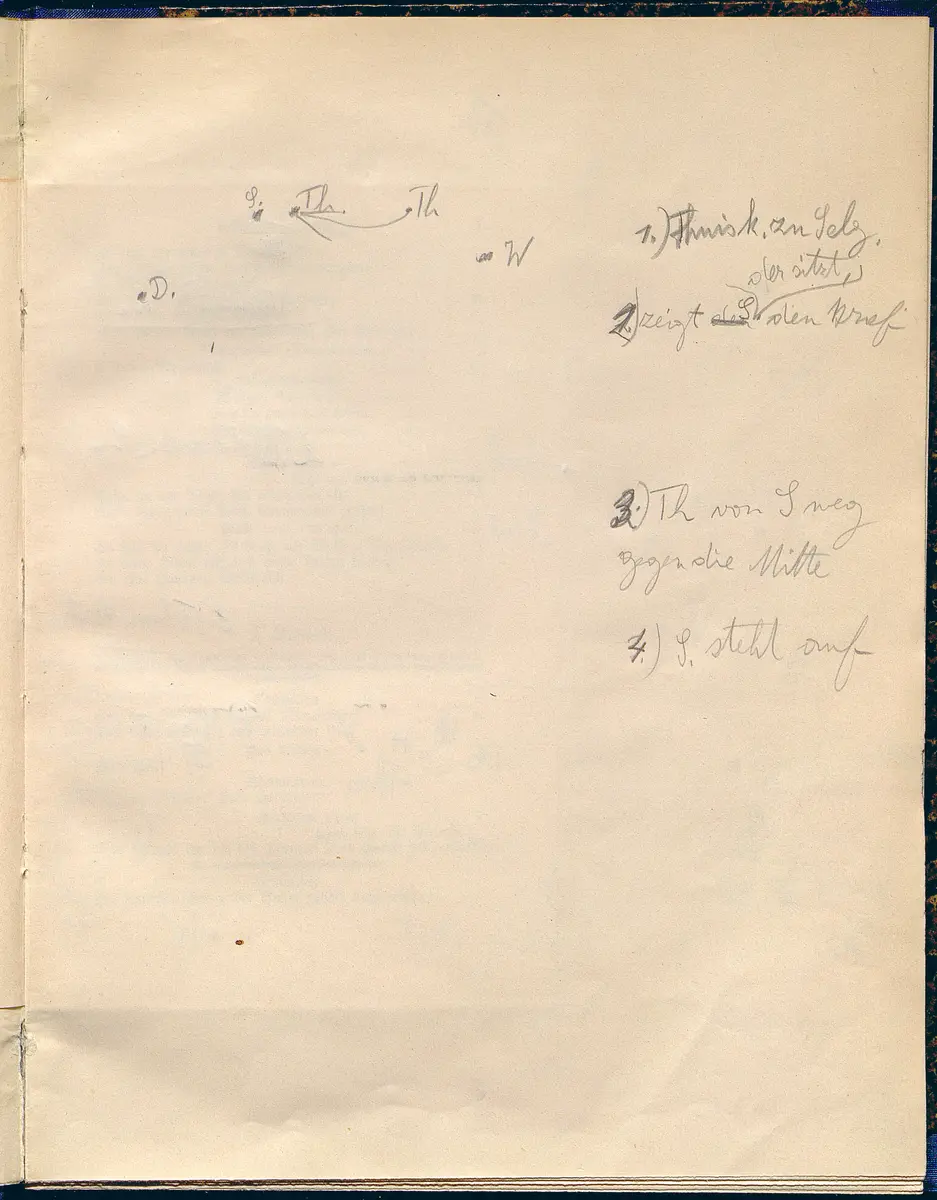 S. Th. Th
W
D.
1.) Thuisk. zu Selg.
der sitzt,
2.) zeigt den S. den Brief
3.) Th von S weg
gegen die Mitte
4.) S. steht auf